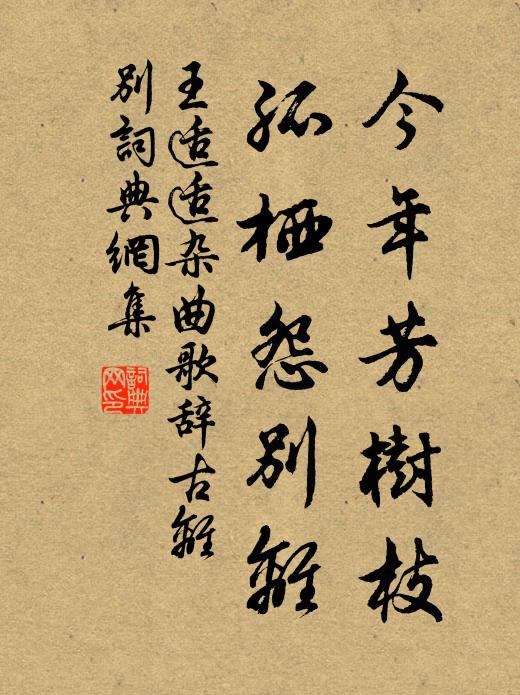 今年芳樹枝
孤栖怨別離
王适适杂曲歌辞古離
別詞典網集
詞典
网印